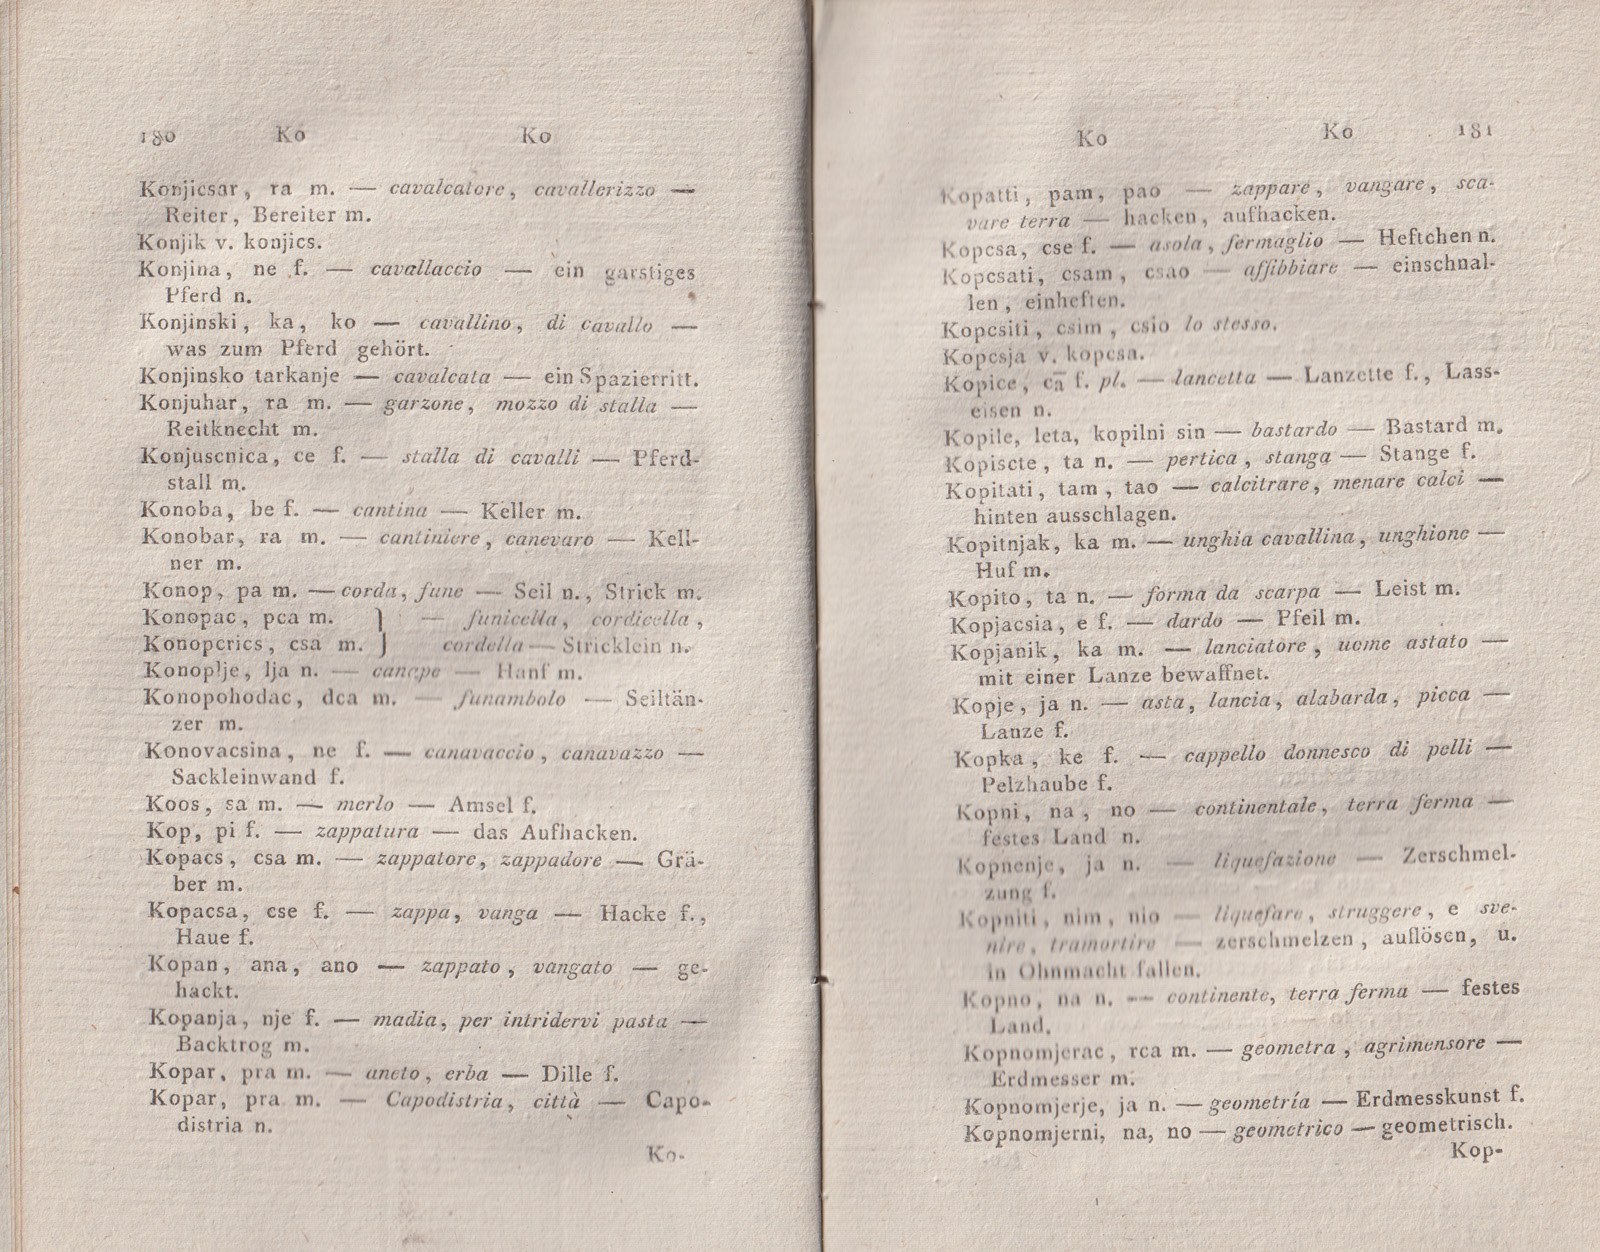 180 Ko Ko
Konjicsar, ra m. — cavalcatore, cavallerizzo —
Reiter, Bereiter m.
Konjik v. konjics.
Konjina, ne f. — cavallaccio — ein garstiges
Pferd n.
Konjinski, ka, ko — cavallino, di cavallo —
was zum Pferd gehört.
Konjinsko tarkanje — cavalcata — ein Spazierritt.
Konjuhar, ra m. — garzone, mozzo di stalla —
Reitknecht m.
Konjuscnica, ce f. — stalla di cavalli — Pferd-
stall m.
Konoba, be f. — cantina — Keller m.
Konobar, ra m. — cantiniere, canevaro — Kell-
ner m.
Konop, pa m. — corda, fune — Seil n., Strick m.
Konopac, pca m. } — funicella, cordicella,
Konopcrics, csa m. } cordella — Stricklein n.
Konoplje, lja n. — canape — Hanf m.
Konopohodac, dca m. — funambolo — Seiltän-
zer m.
Konovacsina, ne f. — canavaccio, canavazzo —
Sackleinwand f.
Koos, sa m. — merlo — Amsel f.
Kop, pi f. — zappatura — das Aufhacken.
Kopacs, csa m. — zappatore, zappadore — Grä-
ber m.
Kopacsa, cse f. — zappa, vanga — Hacke f.,
Haue f.
Kopan, ana, ano — zappato, vangato — ge-
hackt.
Kopanja, nje f. — madia, per intridervi pasta —
Backtrog m.
Kopar, pra m. — aneto, erba — Dille f.
Kopar, pra m. — Capodistria, città — Capo-
distria n.
Ko-
Ko Ko 181
Kopatti, pam, pao — zappare, vangare, sca-
vare terra — hacken, aufhacken.
Kopcsa, cse f. — asola, fermaglio — Heftchen n.
Kopcsati, csam, csao — affibbiare — einschnal-
len, einheften.
Kopcsiti, csim, csio lo stesso.
Kopcsja v. kopcsa.
Kopice, cā f. pl. — lancetta — Lanzette f., Lass-
eisen n.
Kopile, leta, kopilni sin — bastardo — Bastard m.
Kopiscte, ta n. — pertica, stanga — Stange f.
Kopitati, tam, tao — calcitrare, menare calci —
hinten ausschlagen.
Kopitnjak, ka m. — unghia cavallina, unghione —
Huf m.
Kopito, ta n. — forma da scarpa — Leist m.
Kopjacsia, e f. — dardo — Pfeil m.
Kopjanik, ka m. — lanciatore, uome astato —
mit einer Lanze bewaffnet.
Kopje, ja n. — asta, lancia, alabarda, picca —
Lanze f.
Kopka, ke f. — cappello donnesco di pelli —
Pelzhaube f.
Kopni, na, no — continentale, terra ferma —
festes Land n.
Kopnenje, ja n. — liquefazione — Zerschmel-
zung f.
Kopniti, nim, nio — liquefare, struggere, e sve-
nire, tramortire — zerschmelzen, auflösen, u.
in Ohnmacht fallen.
Kopno, na n. — continente, terra ferma — festes
Land.
Kopnomjerac, rca m. — geometra, agrimensore —
Erdmesser m.
Kopnomjerje, ja n. — geometría — Erdmesskunst f.
Kopnomjerni, na, no — geometrico — geometrisch.
Kop-